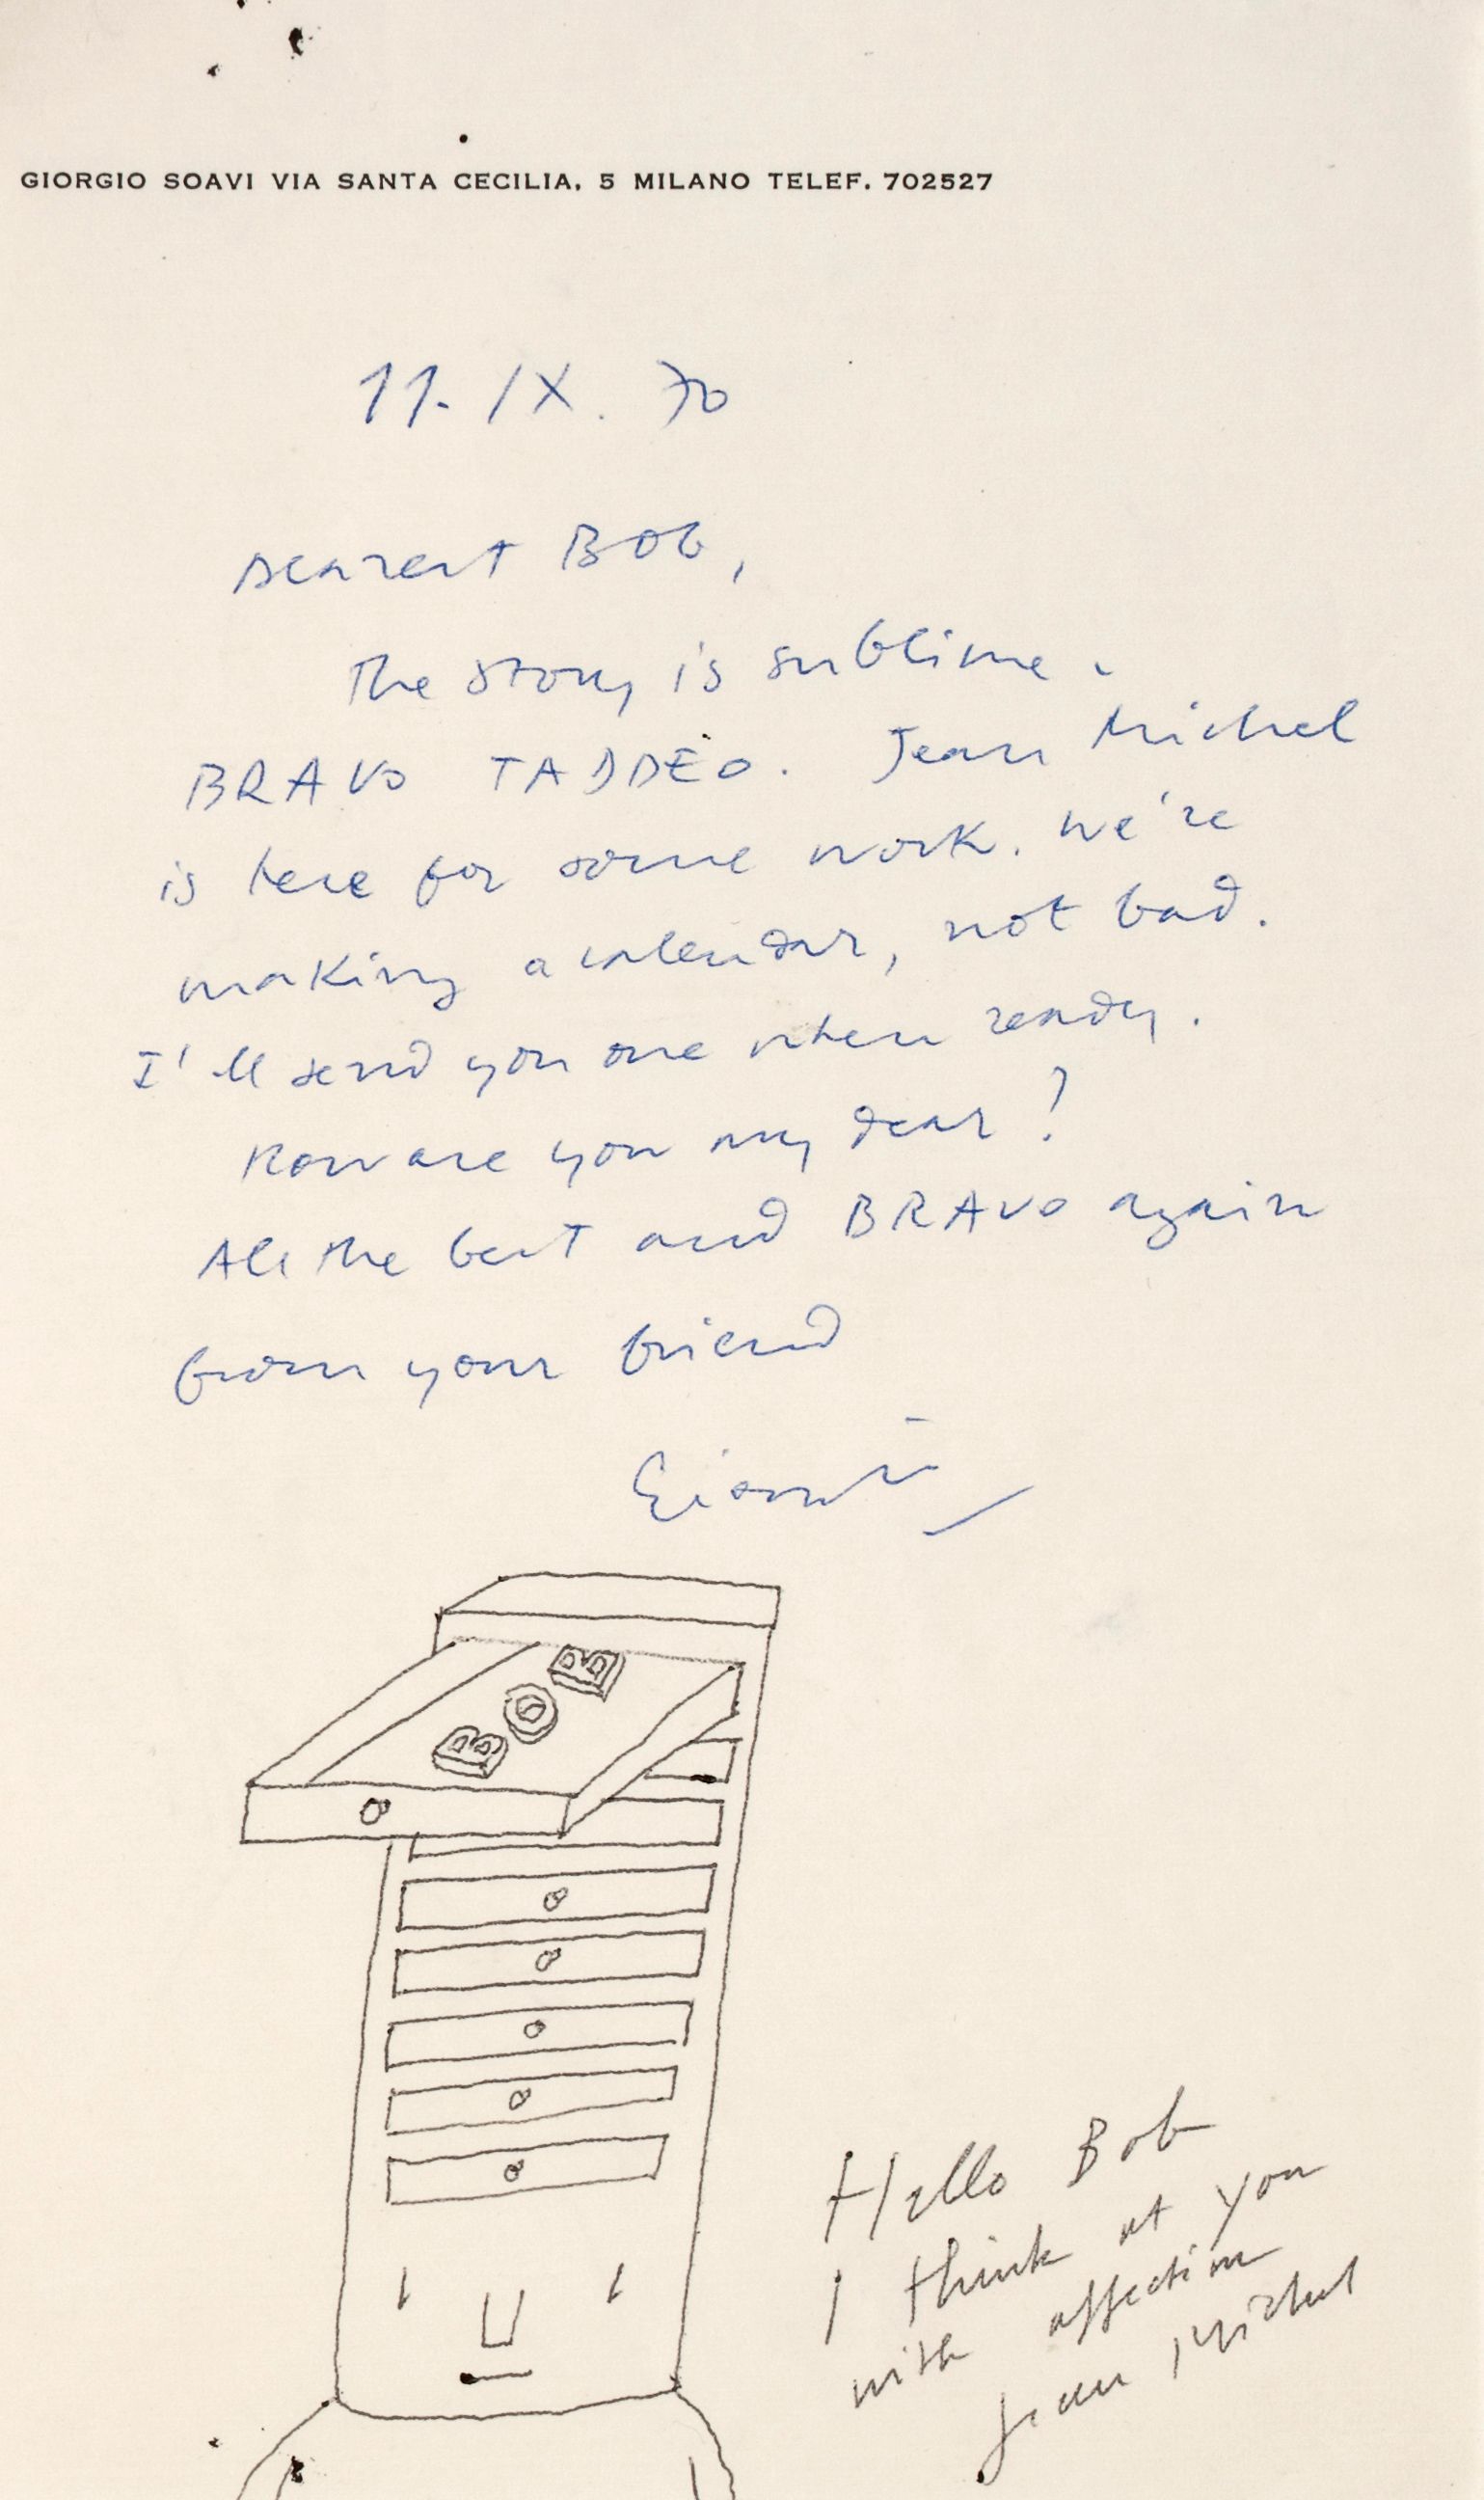 GIORGIO SOAVI VIA SANTA CECILIA, 5 MILANO TELEF. 702527
11. IX. 70
Dearest Bob,
The story is sublime.
BRAVO TADDEO. Jean Michel
is here for some work. We're
making a calendar, not bad.
I'll send you one when ready.
How are you my dear?
All the best and BRAVO again
from your friend
BOB
Hello Bob
I think at you
with affection
Jean Michel